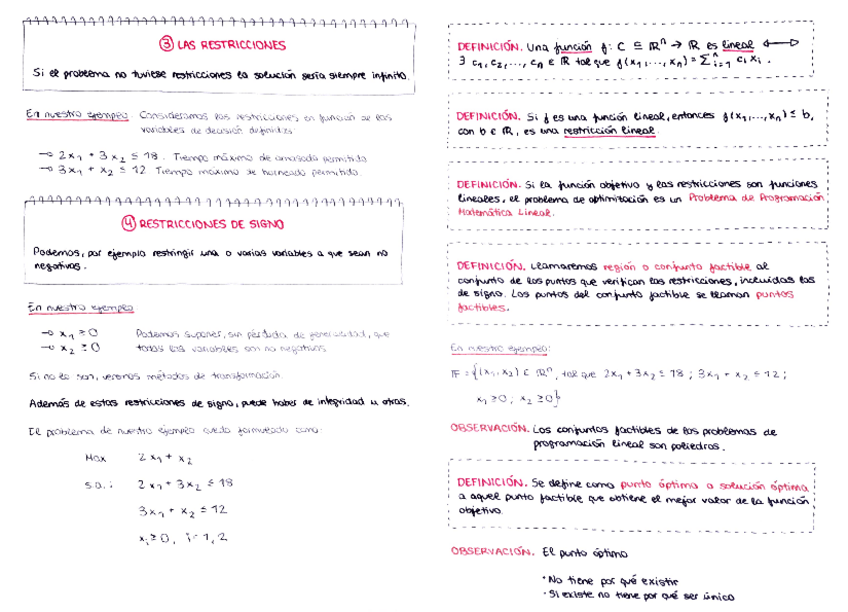 ③ LAS RESTRICCIONES
Si el problema no tuviese restricciones la solución sería siempre infinito.
En nuestro ejemplo. Consideramos las restricciones en función de las
variables de decisión definidas.
→ 2x₁ + 3x₂ ≤ 18. Tiempo máximo de amasado permitido
→ 3x₁ + x₂ ≤ 12 Tiempo máximo de horneado permitido.
④ RESTRICCIONES DE SIGNO
Podemos, por ejemplo restringir una o varias variables a que sean no
negativas.
En nuestro ejemplo
→ x₁ ≥ 0 Podemos suponer, sin pérdida de generalidad, que
→ x₂ ≥ 0 todas las variables son no negativas
Si no lo son, veremos métodos de transformación.
Además de estas restricciones de signo, puede haber de integridad u otras.
El problema de nuestro ejemplo queda formulado como:
Max 2x₁ + x₂
s.a.: 2x₁ + 3x₂ ≤ 18
3x₁ + x₂ ≤ 12
xᵢ ≥ 0, i = 1, 2
DEFINICIÓN. Una función f: C ⊆ ℝⁿ → ℝ es lineal ⟷
∃ c₁, c₂, ..., cₙ ∈ ℝ tal que f(x₁, ..., xₙ) = Σⁿᵢ₌₁ cᵢxᵢ.
DEFINICIÓN. Si f es una función lineal, entonces f(x₁, ..., xₙ) ≤ b,
con b ∈ ℝ, es una restricción lineal.
DEFINICIÓN. Si la función objetivo y las restricciones son funciones
lineales, el problema de optimización es un Problema de Programación
Matemática Lineal.
DEFINICIÓN. Llamaremos región o conjunto factible al
conjunto de los puntos que verifican las restricciones, incluidas las
de signo. Los puntos del conjunto factible se llaman puntos
factibles.
En nuestro ejemplo:
F = {(x₁, x₂) ∈ ℝⁿ, tal que 2x₁ + 3x₂ ≤ 18; 3x₁ + x₂ ≤ 12;
x₁ ≥ 0; x₂ ≥ 0}
OBSERVACIÓN. Los conjuntos factibles de los problemas de
programación lineal son poliedros.
DEFINICIÓN. Se define como punto óptimo o solución óptima
a aquel punto factible que obtiene el mejor valor de la función
objetivo.
OBSERVACIÓN. El punto óptimo
· No tiene por qué existir
· Si existe no tiene por qué ser único